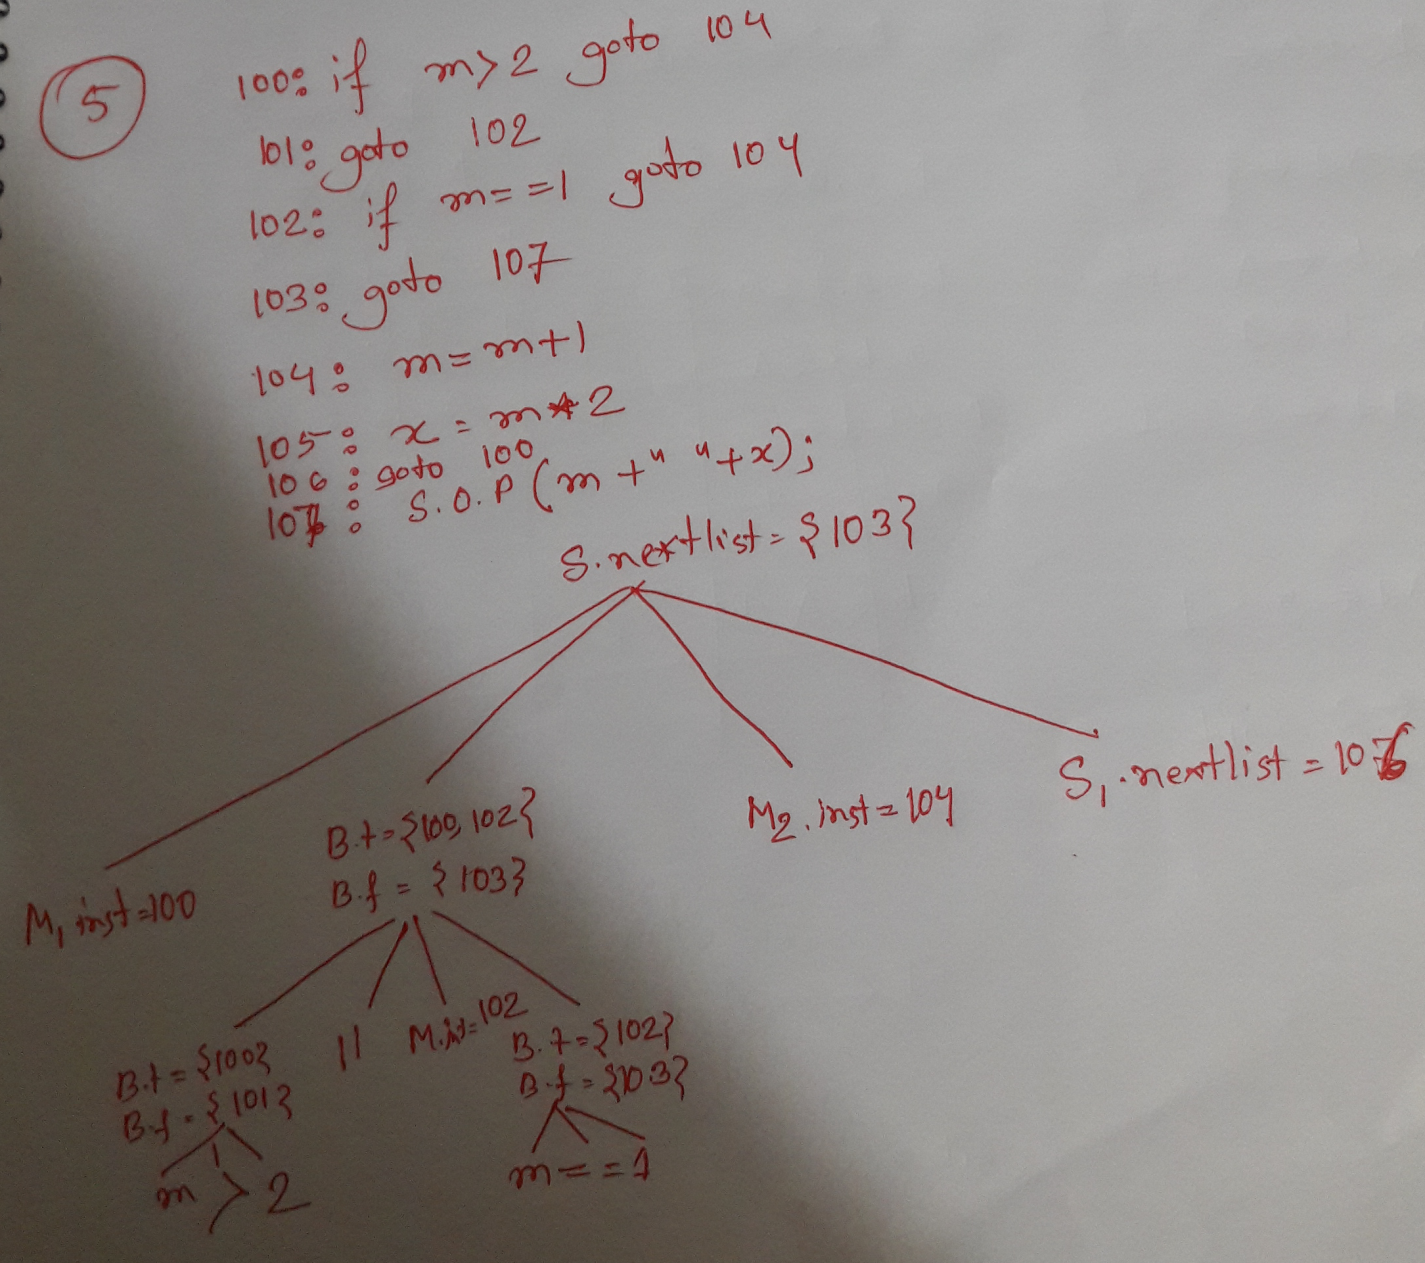 5
100: if m>2 goto 104
101: goto 102
102: if m==1 goto 104
103: goto 107
104: m=m+1
105: x=m*2
106: goto 100
107: S.O.P(m+" "+x);
S.nextlist={103}
M₁ inst=100
B.t={100,102}
B.f={103}
M₂.inst=104
S₁.nextlist=106
B.t={100}
B.f={101}
||
M.inst=102
B.t={102}
B.f={103}
m > 2
m==1